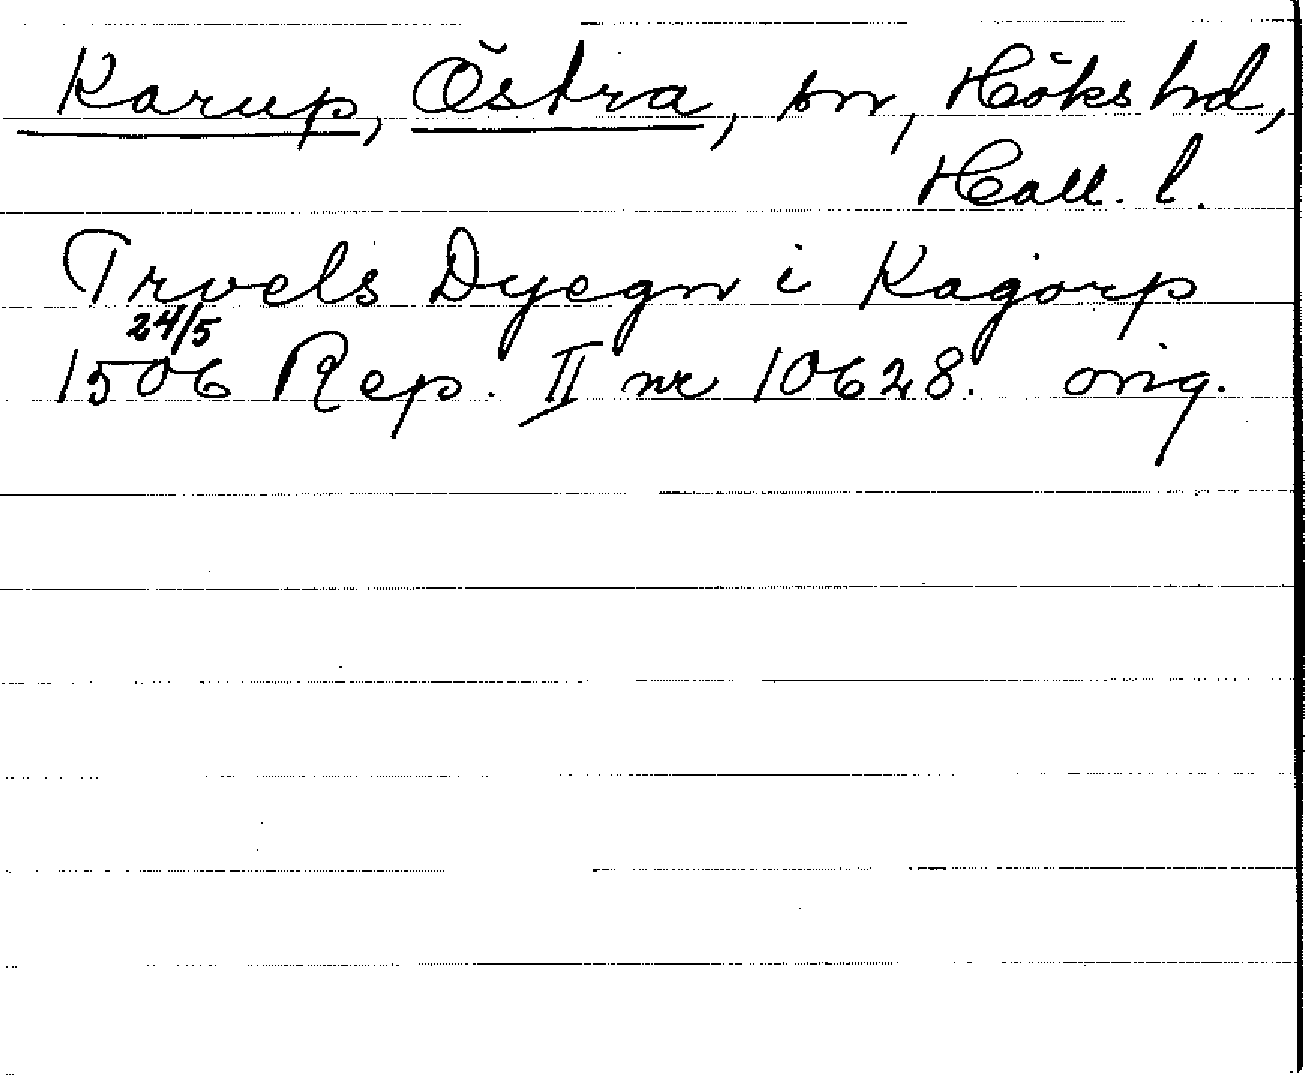 Karup, Östra, sn, Höks hd,
Hall. l.
Trvels Dyegn i Kagorp
24/5
1506 Rep. II nr 10628. orig.